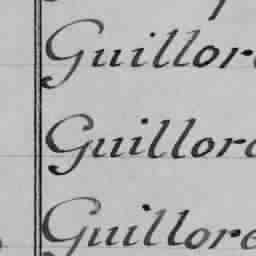 Guillore
Guillore
Guillore